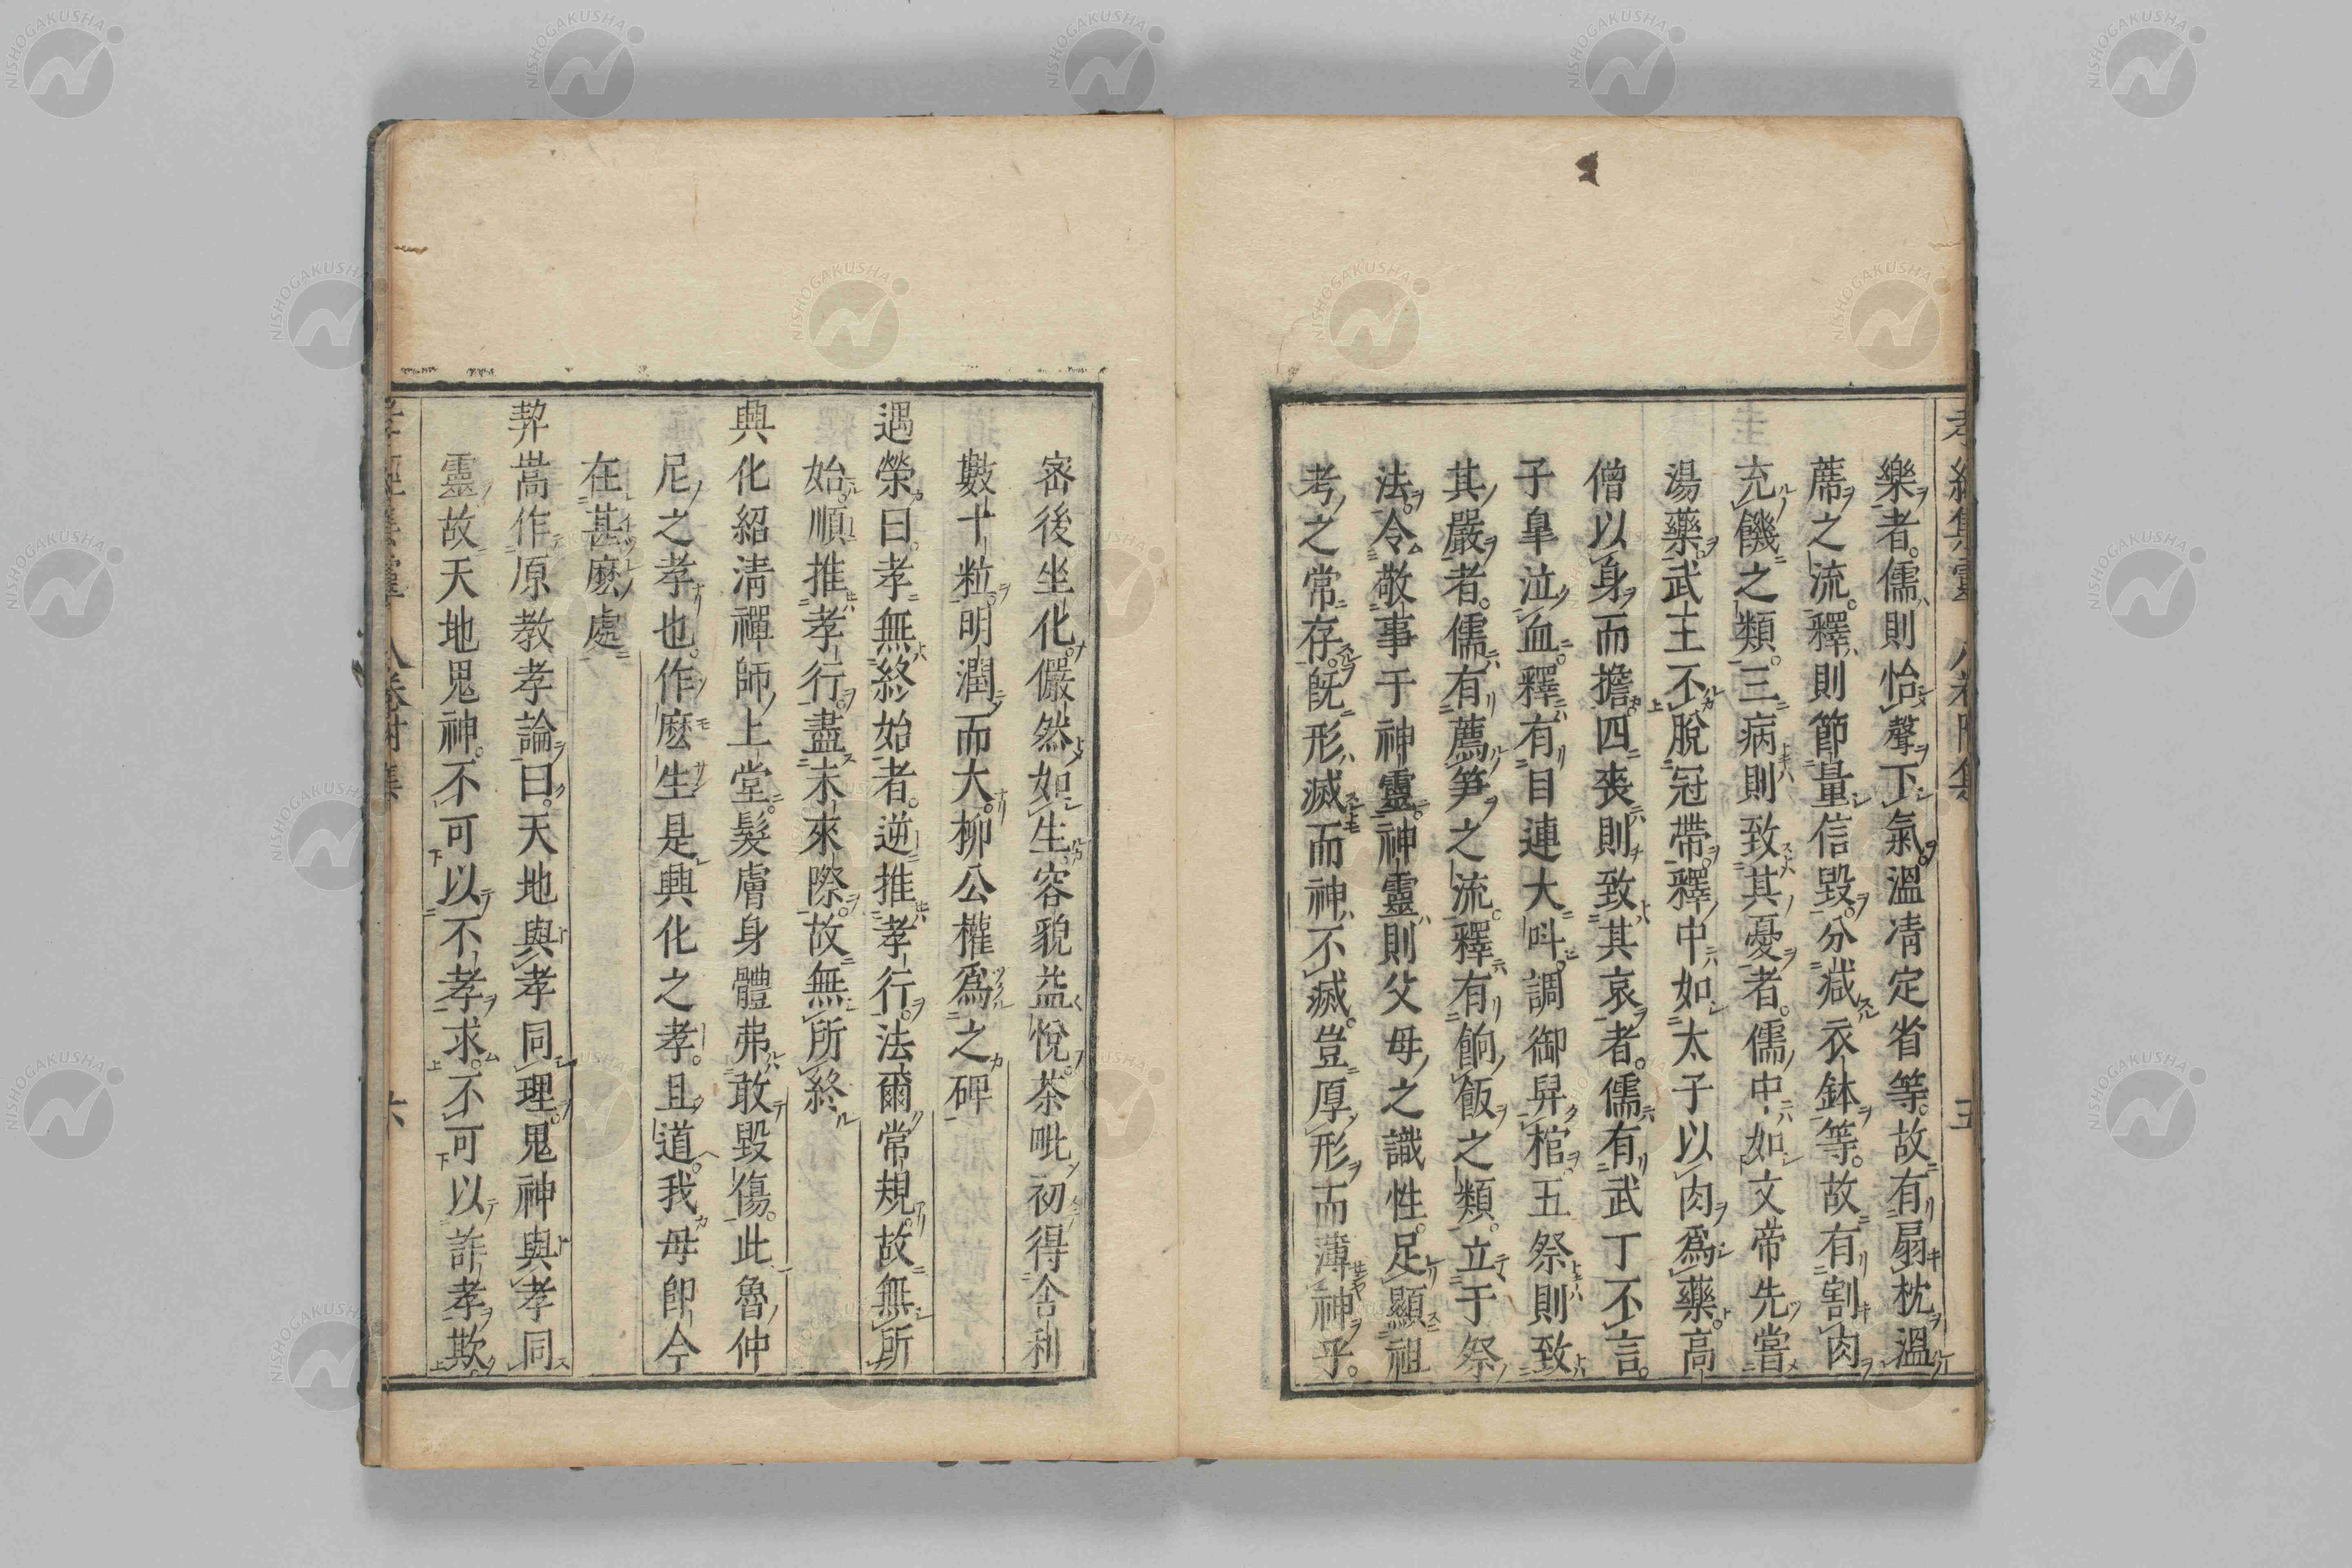 樂者。儒則怡聲下氣。溫凊定省等。故有扇枕溫
蓆之流。釋則節量信毀。分減衣鉢等。故有割肉
充饑之類。三病則致其憂者。儒中如文帝先嘗
湯藥。武王不脫冠帶。釋中如太子以肉爲藥。高
僧以身而擔。四喪則致其哀者。儒有武丁不言。
子皐泣血。釋有目連大叫。調御舁棺。五祭則致
其嚴者。儒有薦笋之流。釋有餉飯之類。立于祭
法。令敬事于神靈。神靈則父母之識性。足顯祖
考之常存。旣形滅而神不滅。豈厚形而薄神乎。
密後坐化。儼然如生。容貌益悅。茶毗初得舍利
數十粒。明潤而大。柳公權爲之碑
遇榮曰。孝無終始者。逆推孝行。法爾常規。故無所
始。順推孝行。盡未來際。故無所終
興化紹淸禪師上堂。髮膚身體弗敢毀傷。此魯仲
尼之孝也。作麼生是興化之孝。且道。我母卽今
在甚麼處
契嵩作原教孝論曰。天地與孝同理。鬼神與孝同
靈。故天地鬼神。不可以不孝求。不可以詐孝欺。
六